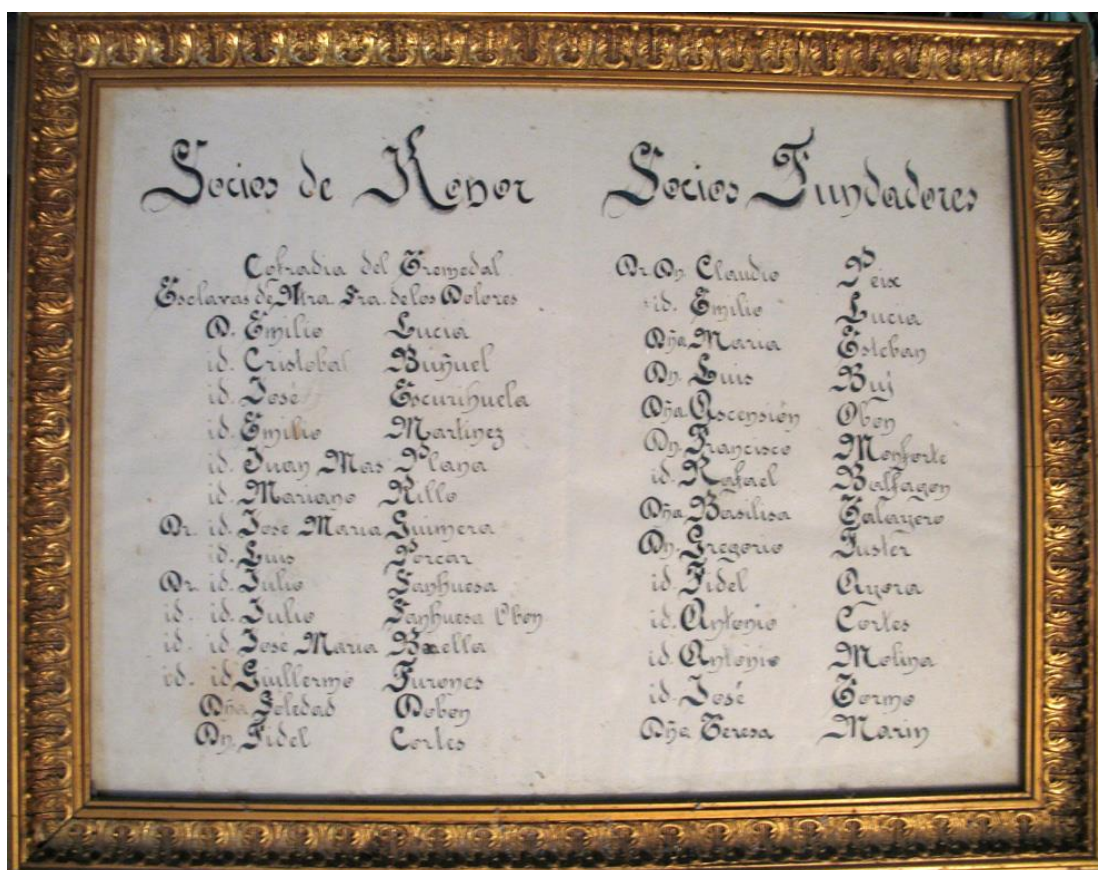 Socios de Honor
Cofradia del Tremedal
Esclavas de Ntra. Sra. de los Dolores
D. Emilio Lucia
id. Cristobal Buñuel
id. José Escurihuela
id. Emilio Martinez
id. Juan Mas Plana
id. Mariano Rillo
Dr. id. Jose Maria Guimera
id. Luis Porcar
Dr. id. Julio Sanhuesa
id. id. Julio Sanhuesa Obon
id. id. Jose Maria
id. id. Guillermo Furones
Dña. Soledad Dobon
Dn. Fidel Cortes
Socios Fundadores
Dr. Dn. Claudio Peix
id. Emilio Lucia
Dña Maria Esteban
Dn. Luis Buj
Dña Ascensión Obon
Dn. Francisco Monforte
id. Rafael Balfagon
Dña Basilisa Talayero
Dn. Gregorio Fuster
id. Fidel Ayora
id. Antonio Cortes
id. Antonio Molina
id. José Tormo
Dña Teresa Marin